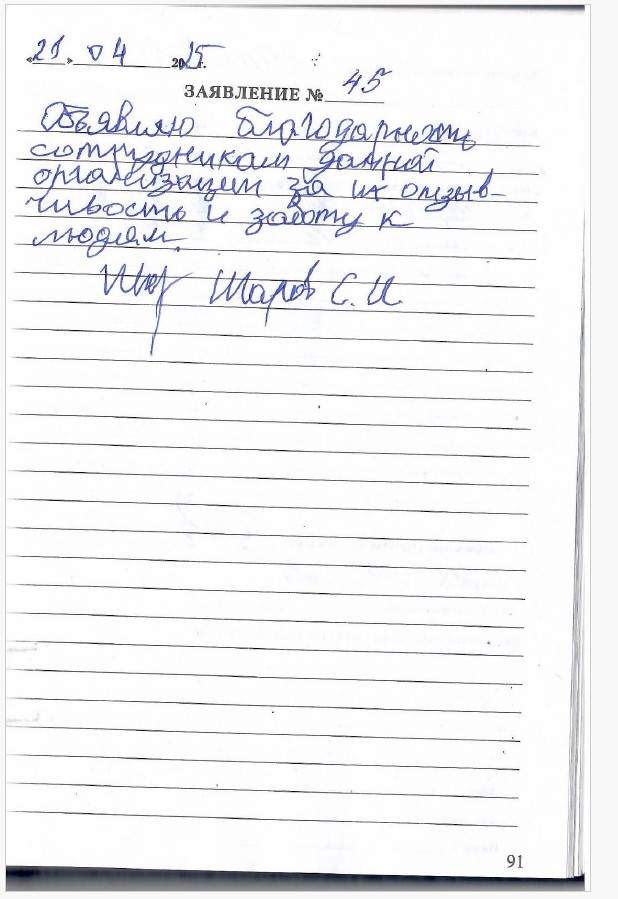 «21» 04 2015г.
ЗАЯВЛЕНИЕ № 45
Объявляю благодарность
сотрудникам данной
организации за их отзыв-
чивость и заботу к
людям.
Шаров С. И.
91